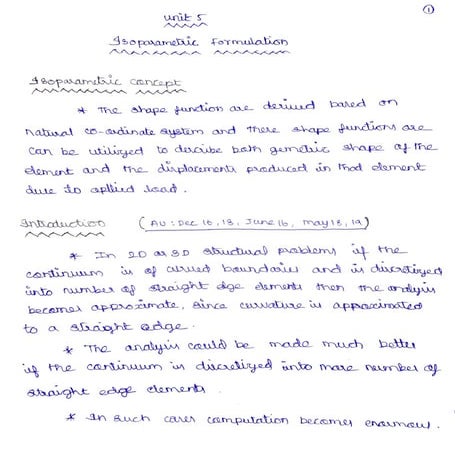 unit 5
①
Isoparametric Formulation
Isoparametric concept
* The shape function are derived based on
natural co-ordinate system and these shape functions are
can be utilized to describe both geometric shape of the
element and the displacements produced in that element
due to applied load.
Introduction (AU: Dec 16, 18, June 16, May 18, 19)
* In 2D or 3D structural problems if the
continuum is of curved boundaries and is discretized
into number of straight edge elements then the analysis
becomes approximate, since curvature is approximated
to a straight edge.
* The analysis could be made much better
if the continuum is discretized into more number of
straight edge elements.
* In such cases computation becomes enormous.